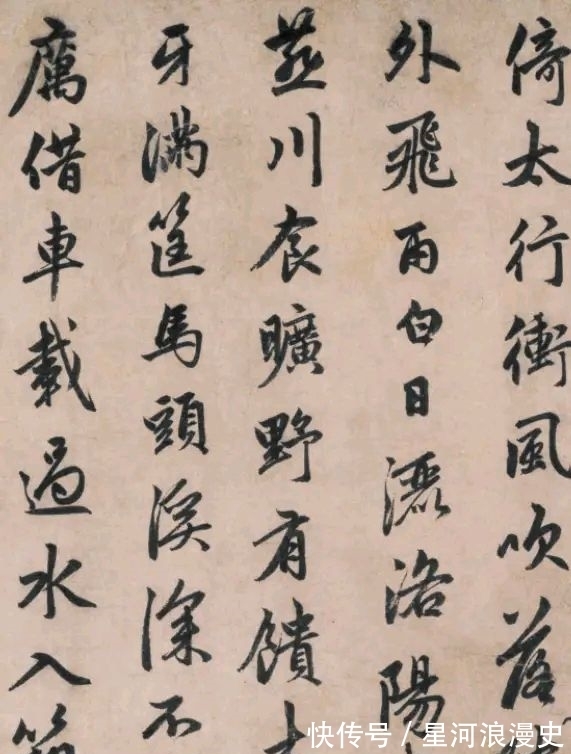 倚太行衝風吹落
外飛雨白日灑洛陽
燕川食曠野有饋
牙滿筐馬頭溪深不
厲借車載過水入
快传号/星河浪漫史